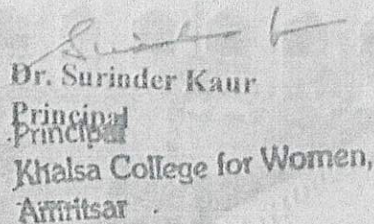 Dr. Surinder Kaur
Principal
Principal
Khalsa College for Women,
Amritsar